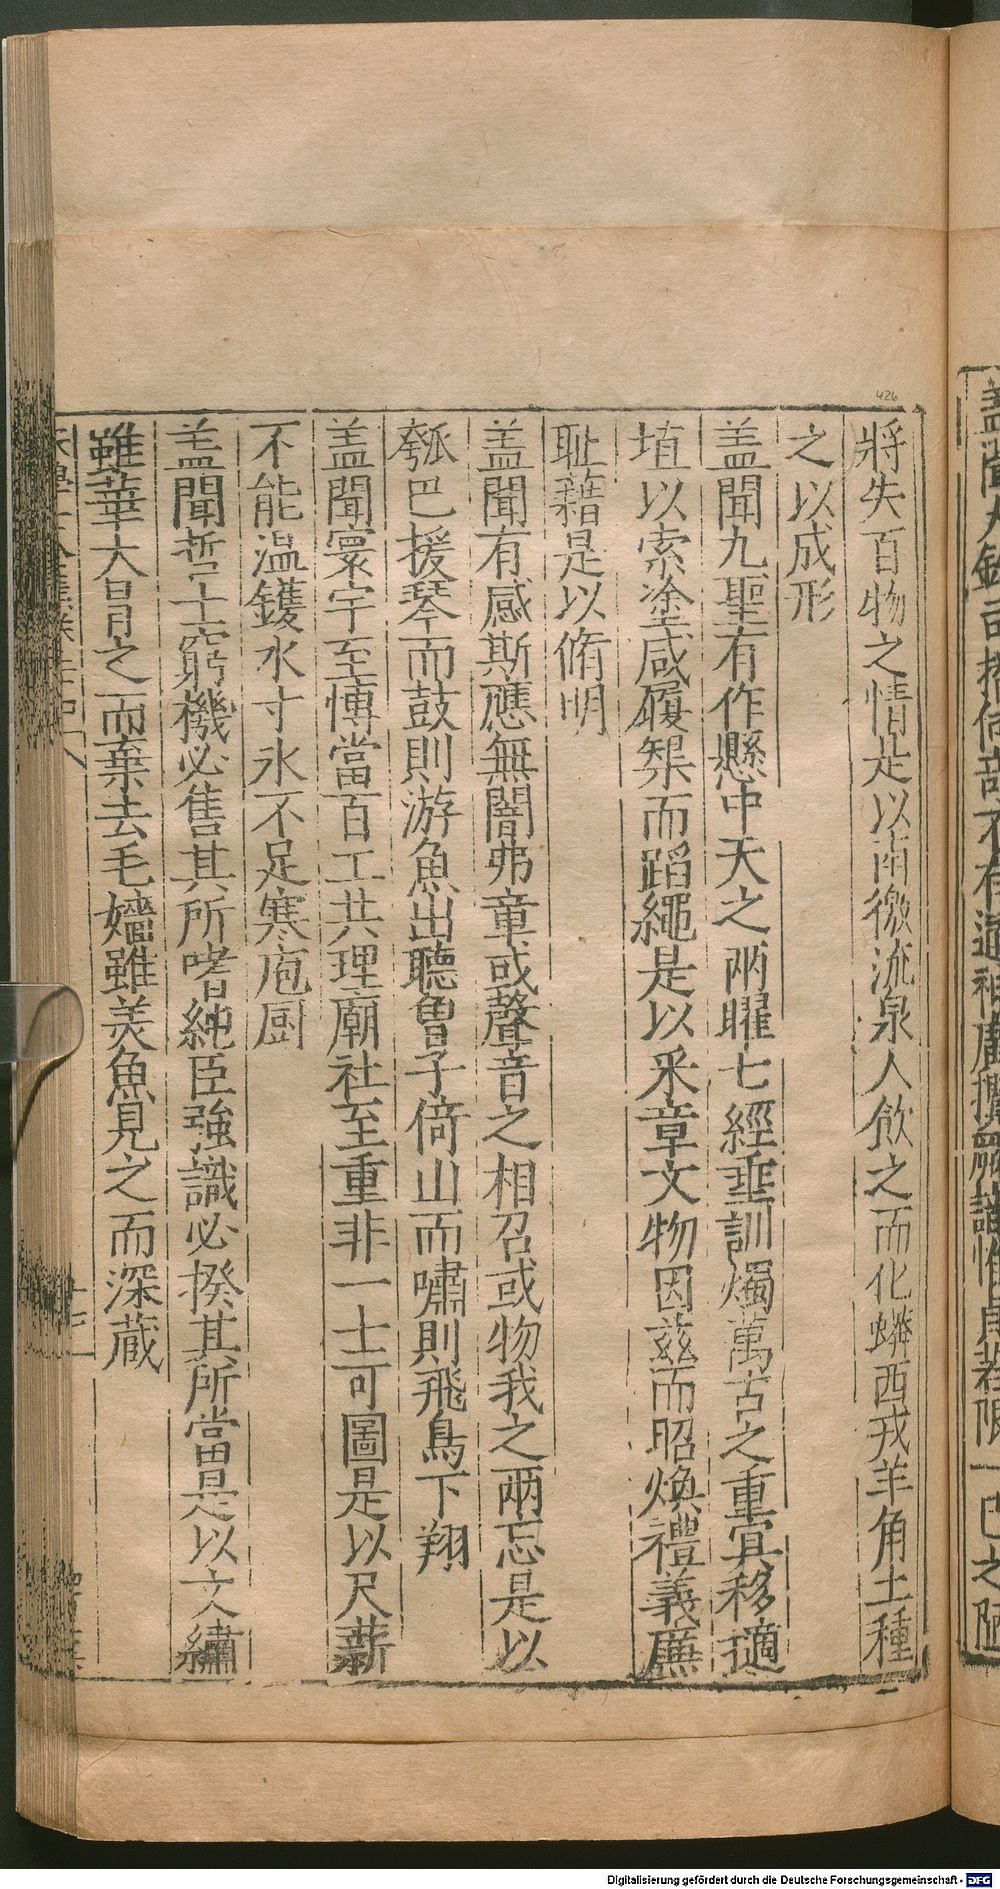 將失百物之情是以南徼流泉人飲之而化蟒西戎羊角土種
之以成形
盖聞九聖有作懸中天之兩曜七經垂訓燭萬古之重宜移擿
埴以索塗咸履榘而蹈繩是以采章文物因茲而昭煥禮義廉
耻藉是以脩明
盖聞有感斯應無闇弗章或聲音之相召或物我之兩忘是以
瓠巴援琴而鼓則游魚出聽魯子倚山而嘯則飛鳥下翔
盖聞寰宇至博當百工共理廟社至重非一士可圖是以尺薪
不能温鑊水寸氷不足寒庖厨
盖聞哲士窮機必售其所嗜純臣強識必揆其所當是以文繡
雖華大冒之而棄去毛嬙雖美魚見之而深蔵
426
Digitalisierung gefördert durch die Deutsche Forschungsgemeinschaft - DFG